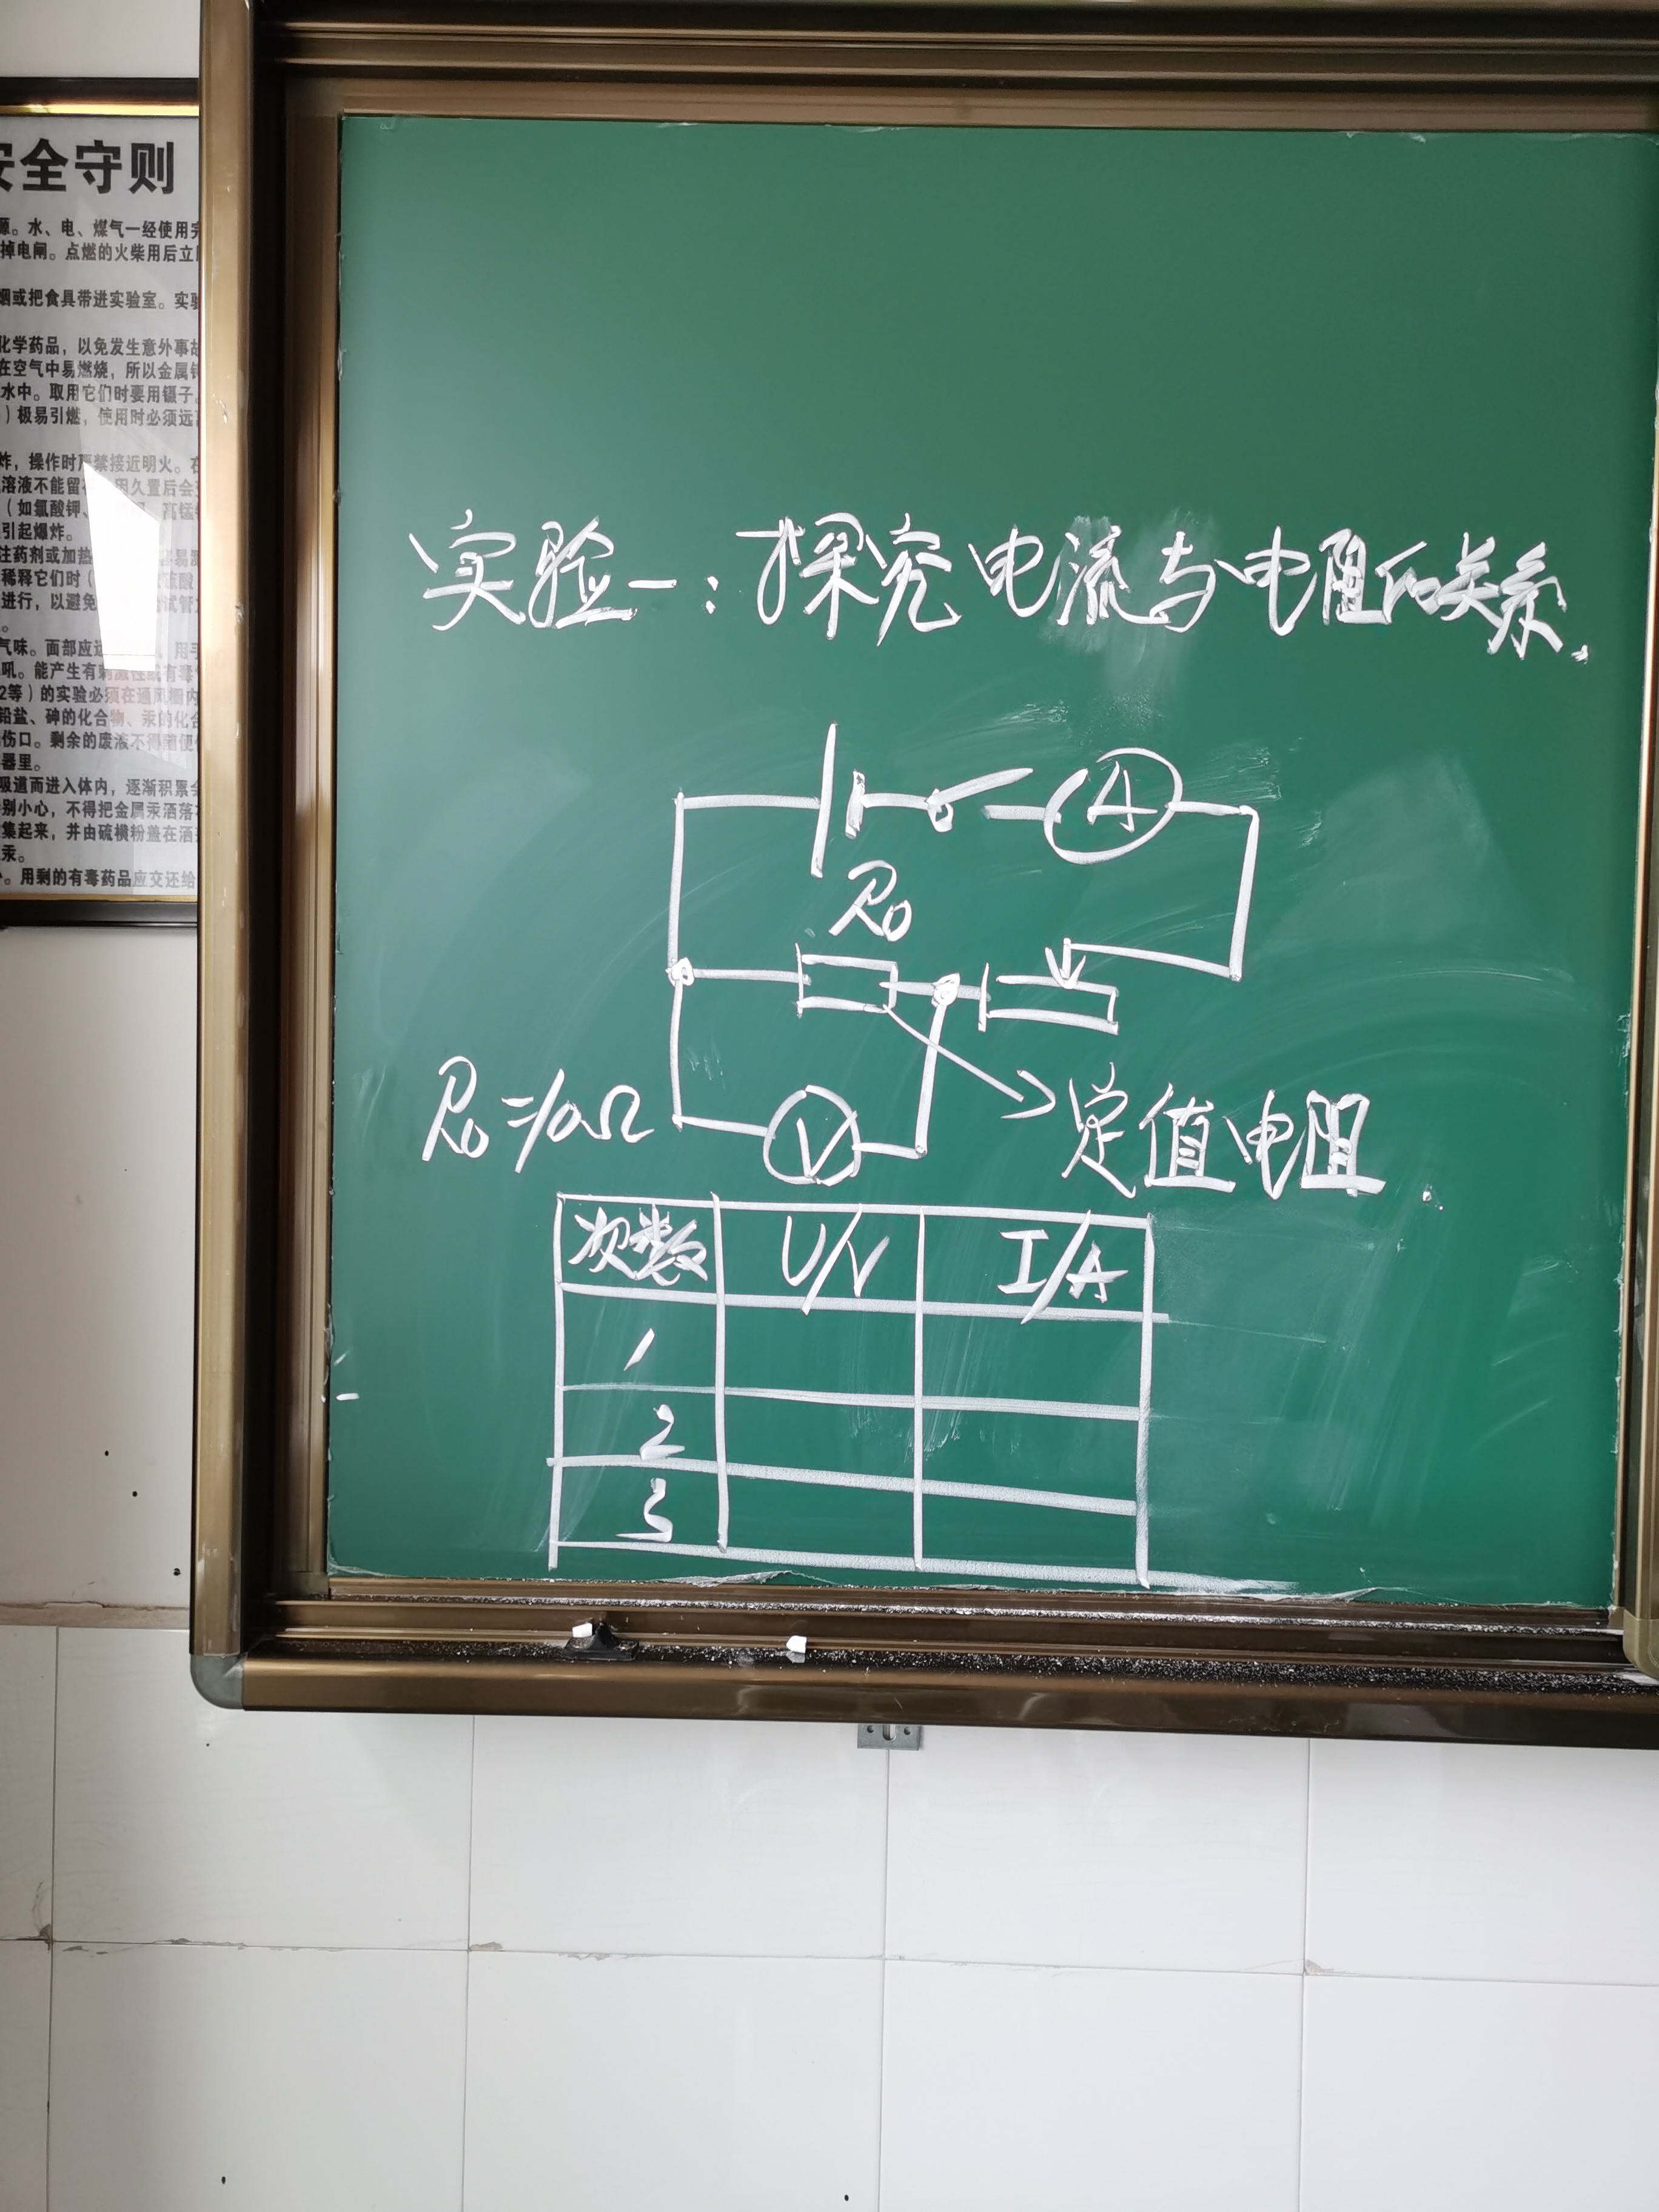 安全守则
源。水、电、煤气一经使用完
掉电闸。点燃的火柴用后立即
烟或把食具带进实验室。实验
化学药品，以免发生意外事故
在空气中易燃烧，所以金属钾
水中。取用它们时要用镊子。
）极易引燃，使用时必须远离
炸，操作时严禁接近明火。在
溶液不能留 因久置后会变
（如氯酸钾、 高锰
引起爆炸。
注药剂或加热 容易溅
稀释它们时（ 硫酸
进行，以避免 试管
。
气味。面部应远 用手
吼。能产生有刺激性或有毒
2等）的实验必须在通风橱内
铅盐、砷的化合物、汞的化合
伤口。剩余的废液不得随便
器里。
吸道而进入体内，逐渐积累会
别小心，不得把金属汞洒落在
集起来，并用硫磺粉盖在洒
汞。
。用剩的有毒药品应交还给
实验一：探究电流与电阻的关系.
A
R₀
R₀=10Ω
V
定值电阻.
次数 U/V I/A
1
2
3